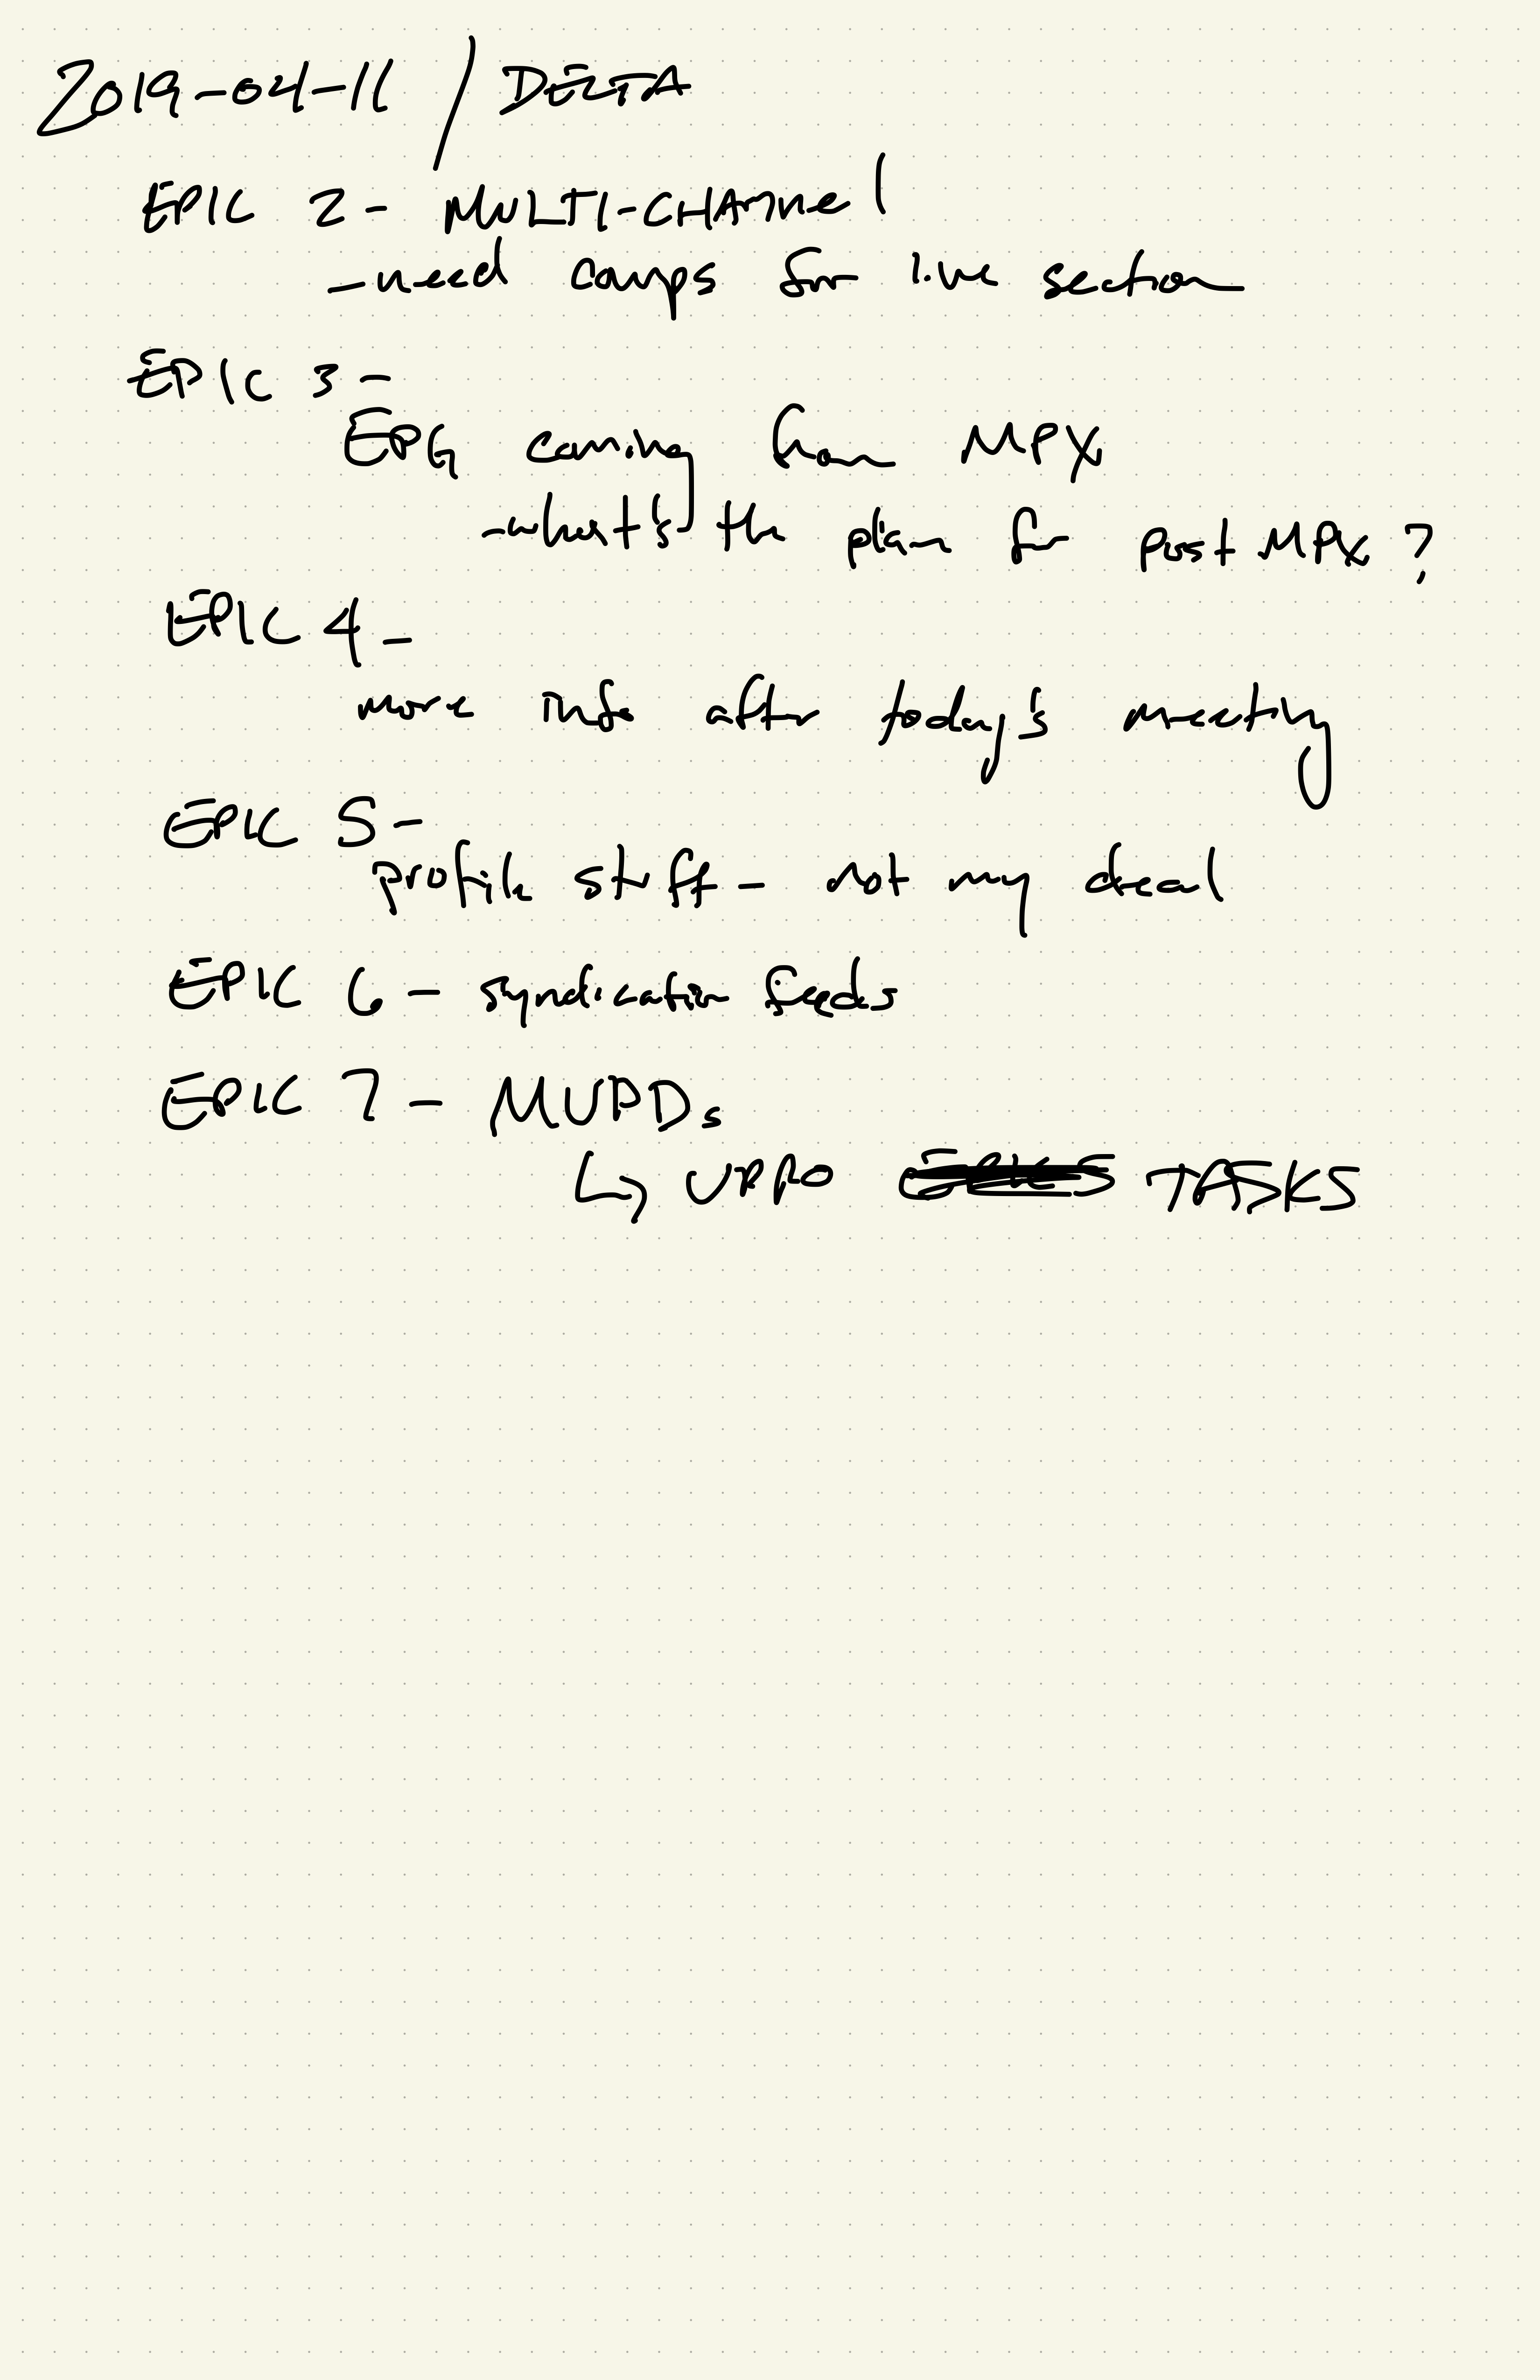 2019-04-11 / DELTA
EPIC 2 - MULTI-CHANnel
- need comps for live section
EPIC 3 -
EPG coming from MPX
- what's the plan for post MPX ?
EPIC 4 -
more info after today's meeting
EPIC 5 -
profile stuff - not my deal
EPIC 6 - syndication feeds
EPIC 7 - MUPDs
↳ TASKS